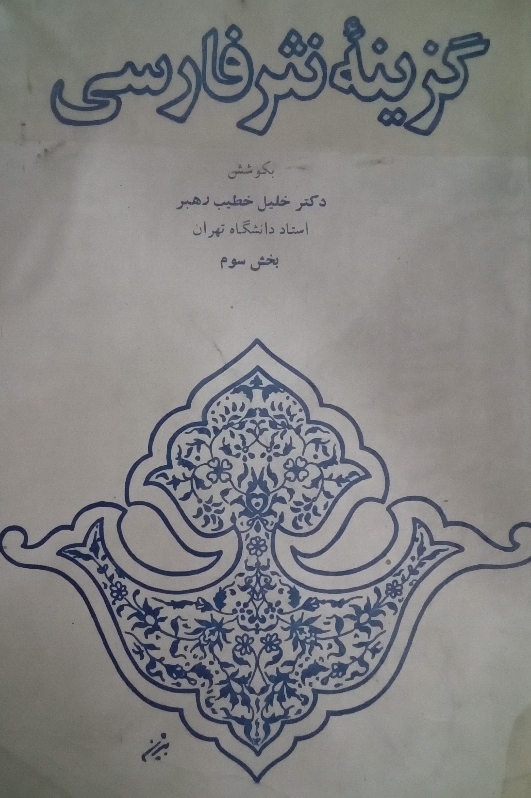 گزینهٔ نثر فارسی
بکوشش
دکتر خلیل خطیب رهبر
استاد دانشگاه تهران
بخش سوم